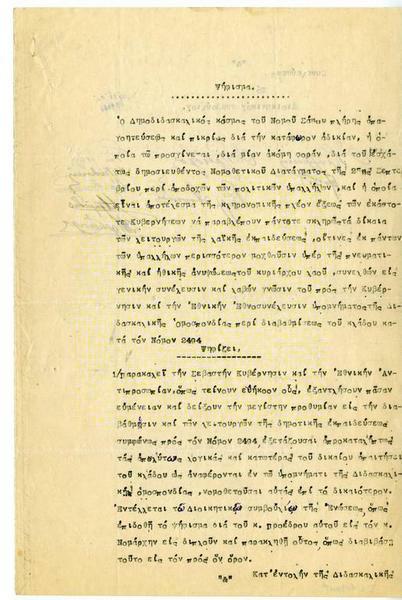 Ψήφισμα.
Ὁ Δημοδιδασκαλικός κόσμος τοῦ Νομοῦ Σάμου πλήρης ἀπα
γοητεύσεως καί πικρίας διά τήν κατάφωρον ἀδικίαν, ἡ ὁ
ποία τῷ προσγίνεται, διά μίαν ἀκόμη φοράν, διά τοῦ ἐσχά
τως δημοσιευθέντος Νομοθετικοῦ Διατάγματος τῆς 2ας Σεπτεμ
βρίου περί ἀποδοχῶν τῶν πολιτικῶν ὑπαλλήλων, καί ἡ ὁποία
εἶναι ἀποτέλεσμα τῆς κληρονομικῆς πλέον ἕξεως τῶν ἑκάστο
τε Κυβερνήσεων νά παραβλέπουν πάντοτε σκληρῶς τά δίκαια
τῶν λειτουργῶν τῆς λαϊκῆς ἐκπαιδεύσεως, οἵτινες ἐκ πάντων
τῶν ὑπαλλήλων περισσότερον μοχθοῦσιν ὑπέρ τῆς πνευματι
κῆς καί ἠθικῆς ἀνυψώσεως τοῦ κυριάρχου λαοῦ, συνελθών εἰς
γενικήν συνέλευσιν καί λαβών γνῶσιν τοῦ πρός τήν Κυβέρ
νησιν καί τήν Ἐθνικήν Ἐθνοσυνέλευσιν ὑπομνήματος τῆς
Διδασκαλικῆς Ὁμοσπονδίας περί διαβαθμίσεως τοῦ κλάδου κα
τά τόν Νόμον 2404
Ψηφίζει,
1/Παρακαλεῖ τήν Σεβαστήν Κυβέρνησιν καί τήν Ἐθνικήν Ἀν
τιπροσωπίαν, ὅπως τείνουν εὐήκοον οὖς, ἐξαντλήσουν πᾶσαν
εὐμένειαν καί δείξουν τήν μεγίστην προθυμίαν εἰς τήν δια
βάθμησιν καί τῶν λειτουργῶν τῆς δημοτικῆς ἐκπαιδεύσεως
συμφώνως πρός τόν Νόμον 2404, ἐξετάζουσαι ἀπροκαταλήπτως
τάς ἀπολύτως λογικάς καί κατωτέρας τοῦ δικαίου ἀπαιτήσεις
τοῦ κλάδου ὡς ἀναφέρονται ἐν τῷ ὑπομνήματι τῆς Διδασκαλι
κῆς ὁμοσπονδίας, νομοθετοῦσαι αὐτάς ἐπί τό δικαιότερον.
Ἐντέλλεται τῷ Διοικητικῷ συμβουλίῳ τῆς Ἑνώσεως, ὅπως
ἐπιδοθῇ τό ψήφισμα διά τοῦ κ. προέδρου αὐτοῦ εἰς τόν κ.
Νομάρχην εἰς διπλοῦν καί παρακληθῇ οὗτος ὅπως διαβιβάσῃ
τοῦτο εἰς τόν πρός ὅν ὅρον.
Κατ' ἐντολήν τῆς Διδασκαλικῆς